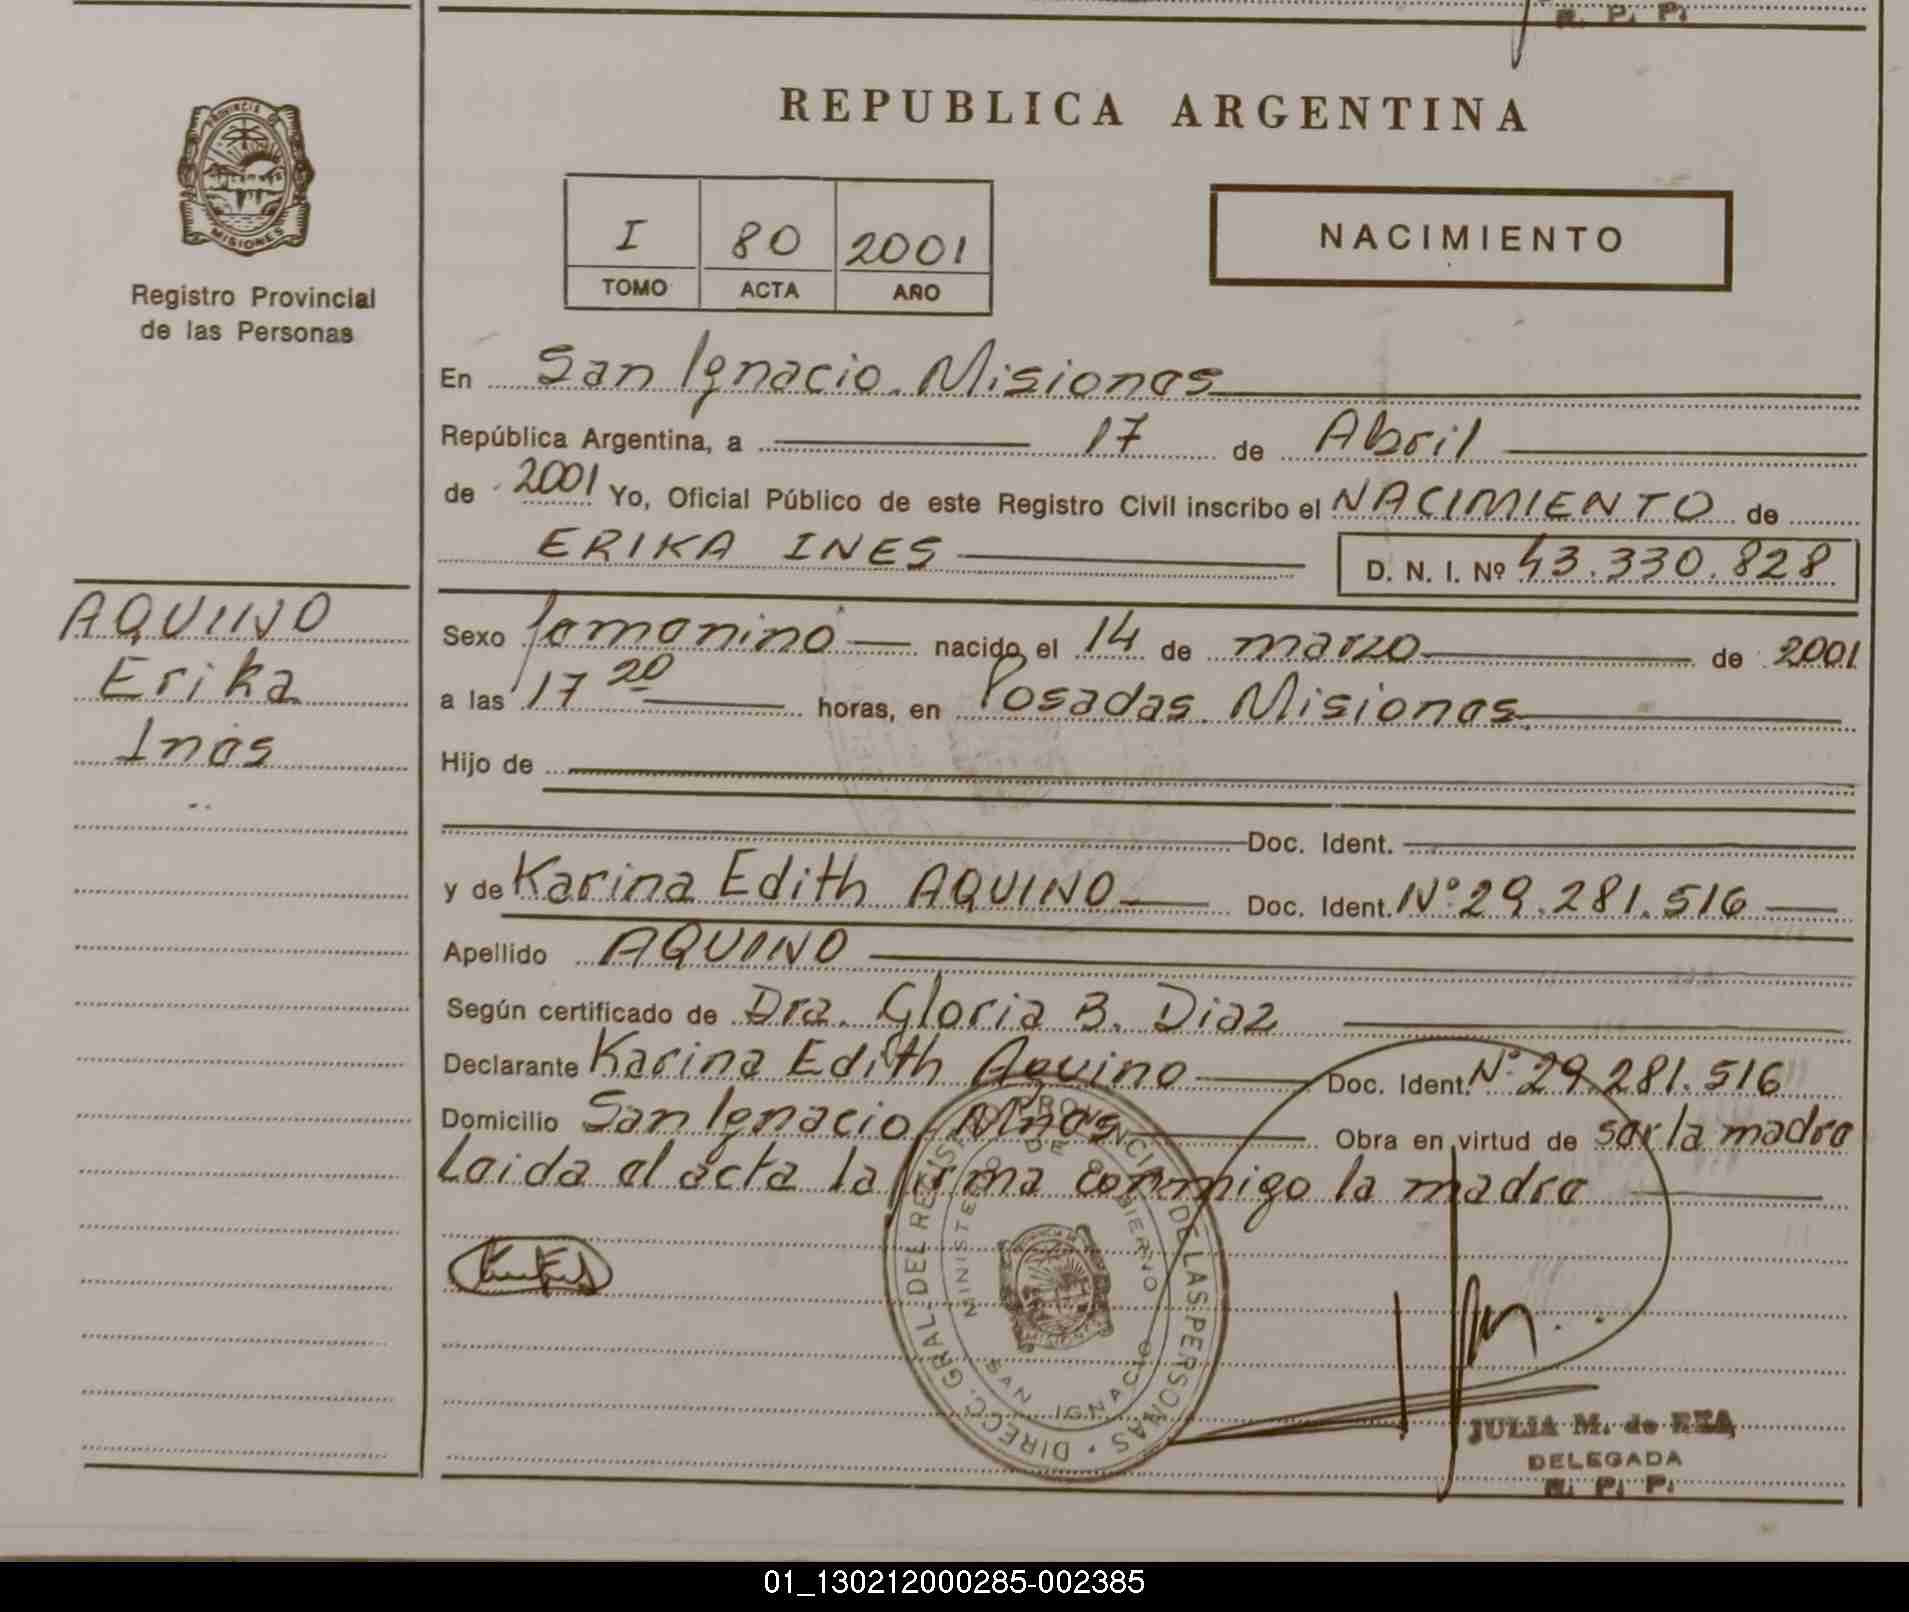 R. P. P.
PROVINCIA DE
MISIONES
Registro Provincial
de las Personas
REPUBLICA ARGENTINA
I 80 2001
TOMO ACTA AÑO
NACIMIENTO
En San Ignacio. Misiones
República Argentina, a 17 de Abril
de 2001 Yo, Oficial Público de este Registro Civil inscribo el NACIMIENTO de
ERIKA INES D. N. I. Nº 43.330.828
AQUINO
Erika
Inés
Sexo femenino nacido el 14 de marzo de 2001
a las 17 20 horas, en Posadas. Misiones
Hijo de
Doc. Ident.
y de Karina Edith AQUINO Doc. Ident. Nº 29.281.516
Apellido AQUINO
Según certificado de Dra. Gloria B. Diaz
Declarante Karina Edith Aquino Doc. Ident. Nº 29.281.516
Domicilio San Ignacio, Mnes Obra en virtud de ser la madre
Leida el acta la firma conmigo la madre
DIRECC. GRAL. DEL REGISTRO PROVINCIAL DE LAS PERSONAS
MINISTERIO DE GOBIERNO
SAN IGNACIO
JULIA M. de REA
DELEGADA
R. P. P.
01_130212000285-002385